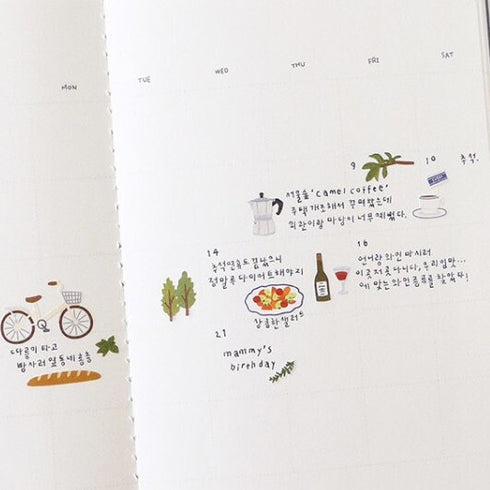 MON
TUE
WED
THU
FRI
SAT
9
10
추석.
서울숲 'camel coffee'
주택 개조해서 꾸며놨는데
외관이랑 마당이 너무 예뻤다.
14
추석연휴도 끝났으니
정말로 다이어트해야지
상큼한 샐러드
16
언니랑 와인 마시러
이곳저곳 다니다, 우리 입맛...
에 맞는 와인 품종을 찾았다!
따릉이 타고
빵 사러 옆동네 총총
21
mammy's
birthday